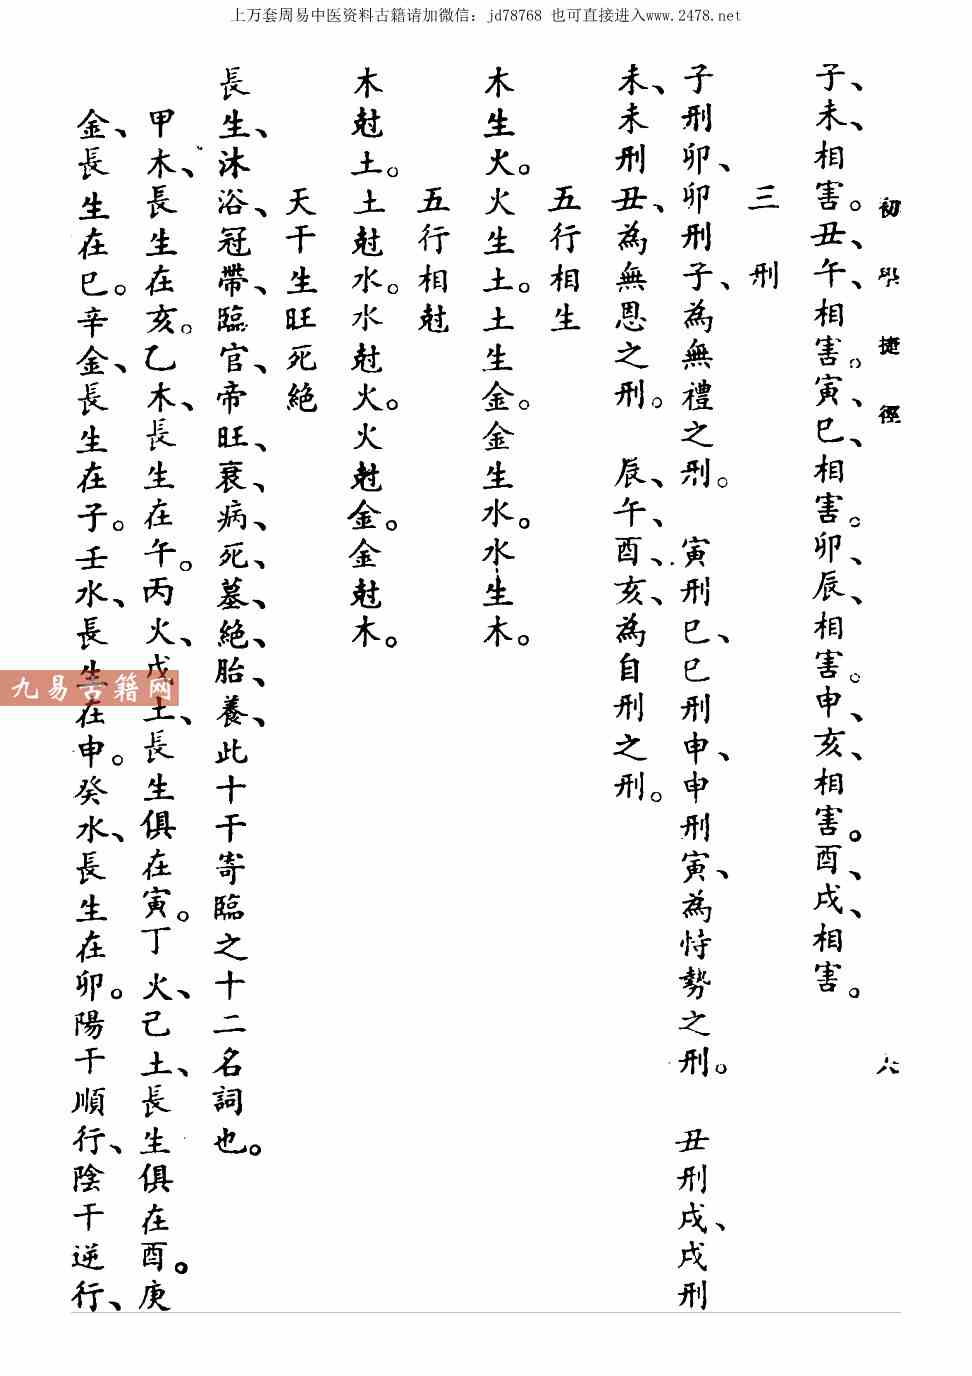 上万套周易中医资料古籍请加微信：jd78768 也可直接进入www.2478.net
初學捷徑
六
子、未、相害。丑、午、相害。寅、巳、相害。卯、辰、相害。申、亥、相害。酉、戌、相害。
三刑
子刑卯、卯刑子、為無禮之刑。 寅刑巳、巳刑申、申刑寅、為恃勢之刑。 丑刑戌、戌刑
未、未刑丑、為無恩之刑。 辰、午、酉、亥、為自刑之刑。
五行相生
木生火。火生土。土生金。金生水。水生木。
五行相尅
木尅土。土尅水。水尅火。火尅金。金尅木。
天干生旺死絕
長生、沐浴、冠帶、臨官、帝旺、衰、病、死、墓、絕、胎、養、此十干寄臨之十二名詞也。
甲木、長生在亥。乙木、長生在午。丙火、戊土、長生俱在寅。丁火、己土、長生俱在酉。庚
金、長生在巳。辛金、長生在子。壬水、長生在申。癸水、長生在卯。陽干順行、陰干逆行、
九易古籍网